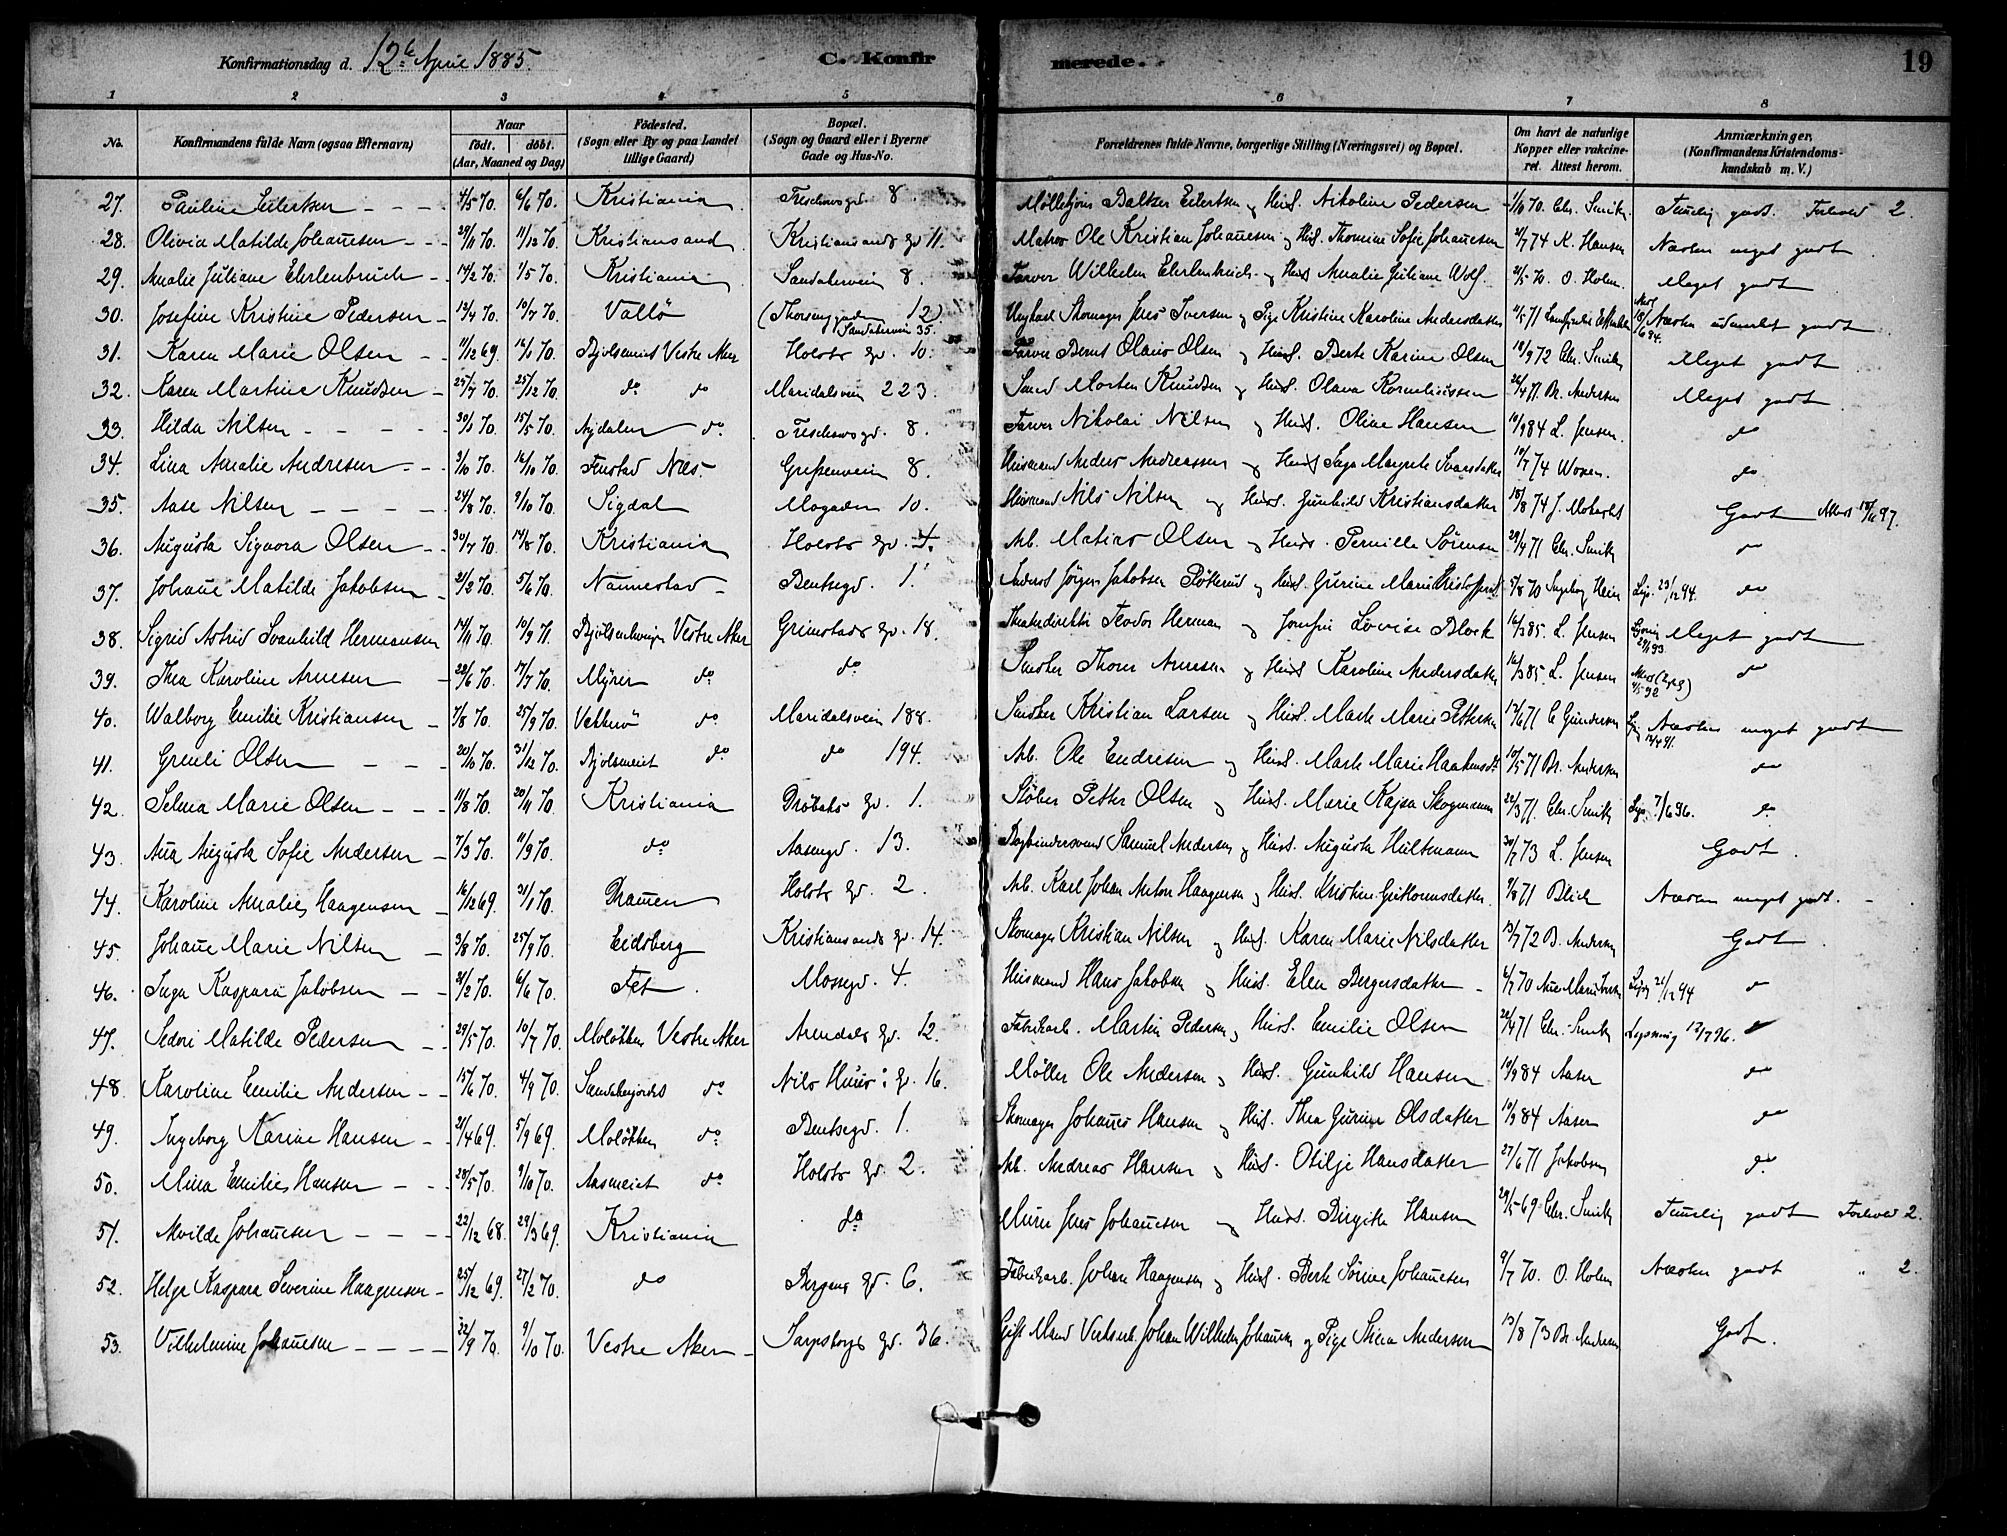 Konfirmationsdag d. 12te April 1885.
C. Konfirmerede.
19
1 2 3 4 5 6 7 8
No. Konfirmandens fulde Navn (ogsaa Efternavn) Naar födt. döbt. (Aar, Maaned og Dag) Födested. (Sogn eller By og paa Landet tillige Gaard) Bopæl. (Sogn og Gaard eller i Byerne Gade og Hus-No. Forældrenes fulde Navne, borgerlige Stilling (Næringsvei) og Bopæl. Om havt de naturlige Kopper eller vakcineret. Attest herom. Anmærkninger, (Konfirmandens Kristendomskundskab m. V.)
27. Pauline Eilertsen 4/5 70. 6/6 70. Kristiania 8. Eilertsen og Hust. Nikoline Pedersen 1/10 70. Chr. Smith Temlig godt. Forhold 2.
28. Olivia Matilde Johannesen 29/11 70. 11/12 70. Kristiansand Kristiansands gd. 11. Matros Ole Kristian Johannesen og Hust. Thomine Sofie Johannesen 21/7 74 K. Hansen Næsten meget godt
29. Amalie Juliane Ehrlenbruch 14/2 70. 1/5 70. Kristiania Sandakerveien 8. Farver Wilhelm Ehrlenbruch og Hust Amalie Juliane Wolf. O. Holm. Meget godt
30. Josefine Kristine Pedersen 13/4 70. 10/7 70. Vallö (Thorsengaden 12) Sandakerveien 35. Ungkarl Skomager Jens Iversen og Pige Kristine Karoline Andersdatter Næsten udmerket godt
31. Karen Marie Olsen 11/12 69. 16/1 70. Bjölseneiet Vestre Aker Holsts gd. 10. Farver Bernt Olaus Olsen og Hust. Berte Karine Olsen 18/9 72 Chr. Smith Meget godt
32. Karen Martine Knudsen 25/7 70. 25/12 70. do do Maridalsveien 223. Smed Morten Knudsen og Hust. Olava Korneliussen 26/4 71. Br. Andersen Meget godt
33. Hilda Nilsen 30/1 70. 15/5 70. Nydalen do. 8. Farver Nikolai Nilsen og Hust. Oline Hansen 10/9 84 L. Jensen. do
34. Lina Amalie Andresen 3/10 70. 16/10 70. Fenstad Næs Grefsenveien 8. Husmand Anders Andreassen og Hust Inga Margrete 10/7 74 Woxen. do
35. Aase Nilsen 24/8 70. 9/10 70. Sigdal Mogaden 10. Husmand Nils Nilsen og Hust. Gunhild Kristiansdatter 18/8 74 J. Godt
36. Augusta Signora Olsen 30/7 70. 14/8 70. Kristiania Holsts gd. 4. Arb. Matias Olsen og Hust. Pernille Sörensen 29/4 71 Chr. Smith do
37. Johanne Matilde Jakobsen 21/2 70. 5/6 70. Nannestad Bentsegd. 1. Jörgen Jakobsen og Hust. Gurine Marie 5/8 70 Ingeborg Hein Lys. 29/12 94. do
38. Sigrid Astrid Svanhild Hermansen 14/11 70. 10/9 71. Vestre Aker Grimstads gd. 18. Theaterdirektör Teodor Herman og Josefine Lovise Block 16/3 85. L. Jensen Meget godt
39. Thea Karoline Arnesen 22/6 70. 17/7 70. Myrer do do Snedker Thorer Arnesen og Hust Karoline Andersdatter 16/3 85. L. Jensen do
40. Walborg Emilie Kristiansen 7/8 70. 25/9 70. Vækkerö do Maridalsveien 188. Snedker Kristian Larsen og Hust. Marte Marie Pettersen 12/6 71 C Gundersen Næsten meget godt
41. Grenli Olsen 20/10 70. 31/12 70. Bjölseneiet do do 194. Arb. Ole Endresen og Hust. Marte Marie Haakensdt. 10/5 71 Br. Andersen do
42. Selma Marie Olsen 11/8 70. 20/11 70. Kristiania Dröbaks gd. 1. Stöber Petter Olsen og Hust. Marie Kajsa Skogmann 22/3 71. Chr. Smith Lys. 7/6 96. do
43. Ana Augusta Sofie Andersen 7/3 70. 11/9 70. do Aasengd. 13. Bogbindersvend Samuel Andersen og Hust. Augusta Hultmann 30/7 73 L. Jensen Godt.
44. Karoline Amalie Haagensen 16/12 69. 31/1 70. Dramen Holsts gd. 2. Arb. Karl Johan Anton Haagensen og Hust. Kristine Guttormsdatter 9/8 71 Blich Næsten meget godt.
45. Johanne Marie Nilsen 3/8 70. 25/9 70. Eidsberg Kristiansands gd. 14. Skomager Kristian Nilsen og Hust. Karen Marie Nilsdatter 13/7 72 B. Andersen Godt
46. Inga Kaspara Jakobsen 21/2 70. 6/6 70. Fet. Mossegd. 4. Husmand Hans Jakobsen og Hust. Elen Bergersdatter 4/7 70 21/12 94 do
47. Sedori Matilde Pedersen 29/5 70. 10/7 70. Molökken Vestre Aker Arendals gd. 12. Fabrikarb. Martin Pedersen og Hust. Emilie Olsen 26/4 71 Chr. Smith Lysning 12/7 96. do
48. Karoline Emilie Andersen 15/6 70. 4/9 70. do Nils Huus: gd. 16. Möller Ole Andersen og Hust. Gunhild Hansen 10/9 84 Aaser do
49. Ingeborg Karine Hansen 21/4 69. 5/9 69. Molökken do Bentsegd. 1. Skomager Johannes Hansen og Hust. Thea Gurine Olsdatter 10/9 84 Aaser do
50. Mina Emilie Hansen 28/5 70. 9/10 70. Aaseneiet do Holsts gd. 2. Arb. Andreas Hansen og Hust. Otilje Hansdatter 27/6 71 Jakobsen do
51. Alvilde Johannesen 22/12 68. 29/3 69. Kristiania do Murer Jens Johannesen og Hust. Birgitte Hansen 29/5 69 Chr. Smith Temlig godt Forhold 2.
52. Helga Kaspara Severine Haagensen 25/12 69. 27/2 70. do Bergens gd. 6. Fabrikarb. Johan Haagensen og Hust. Berte Sörine Johannesen 9/7 70. O. Holm Næsten godt " 2.
53. Vilhelmine Johannesen 22/9 70. 9/10 70. Vestre Aker Sarpsborgs gd. 36. Gift Mand Verksarb. Johan Wilhelm Johannesen og Pige Stina Andersen 13/8 73 Br. Andersen Godt.